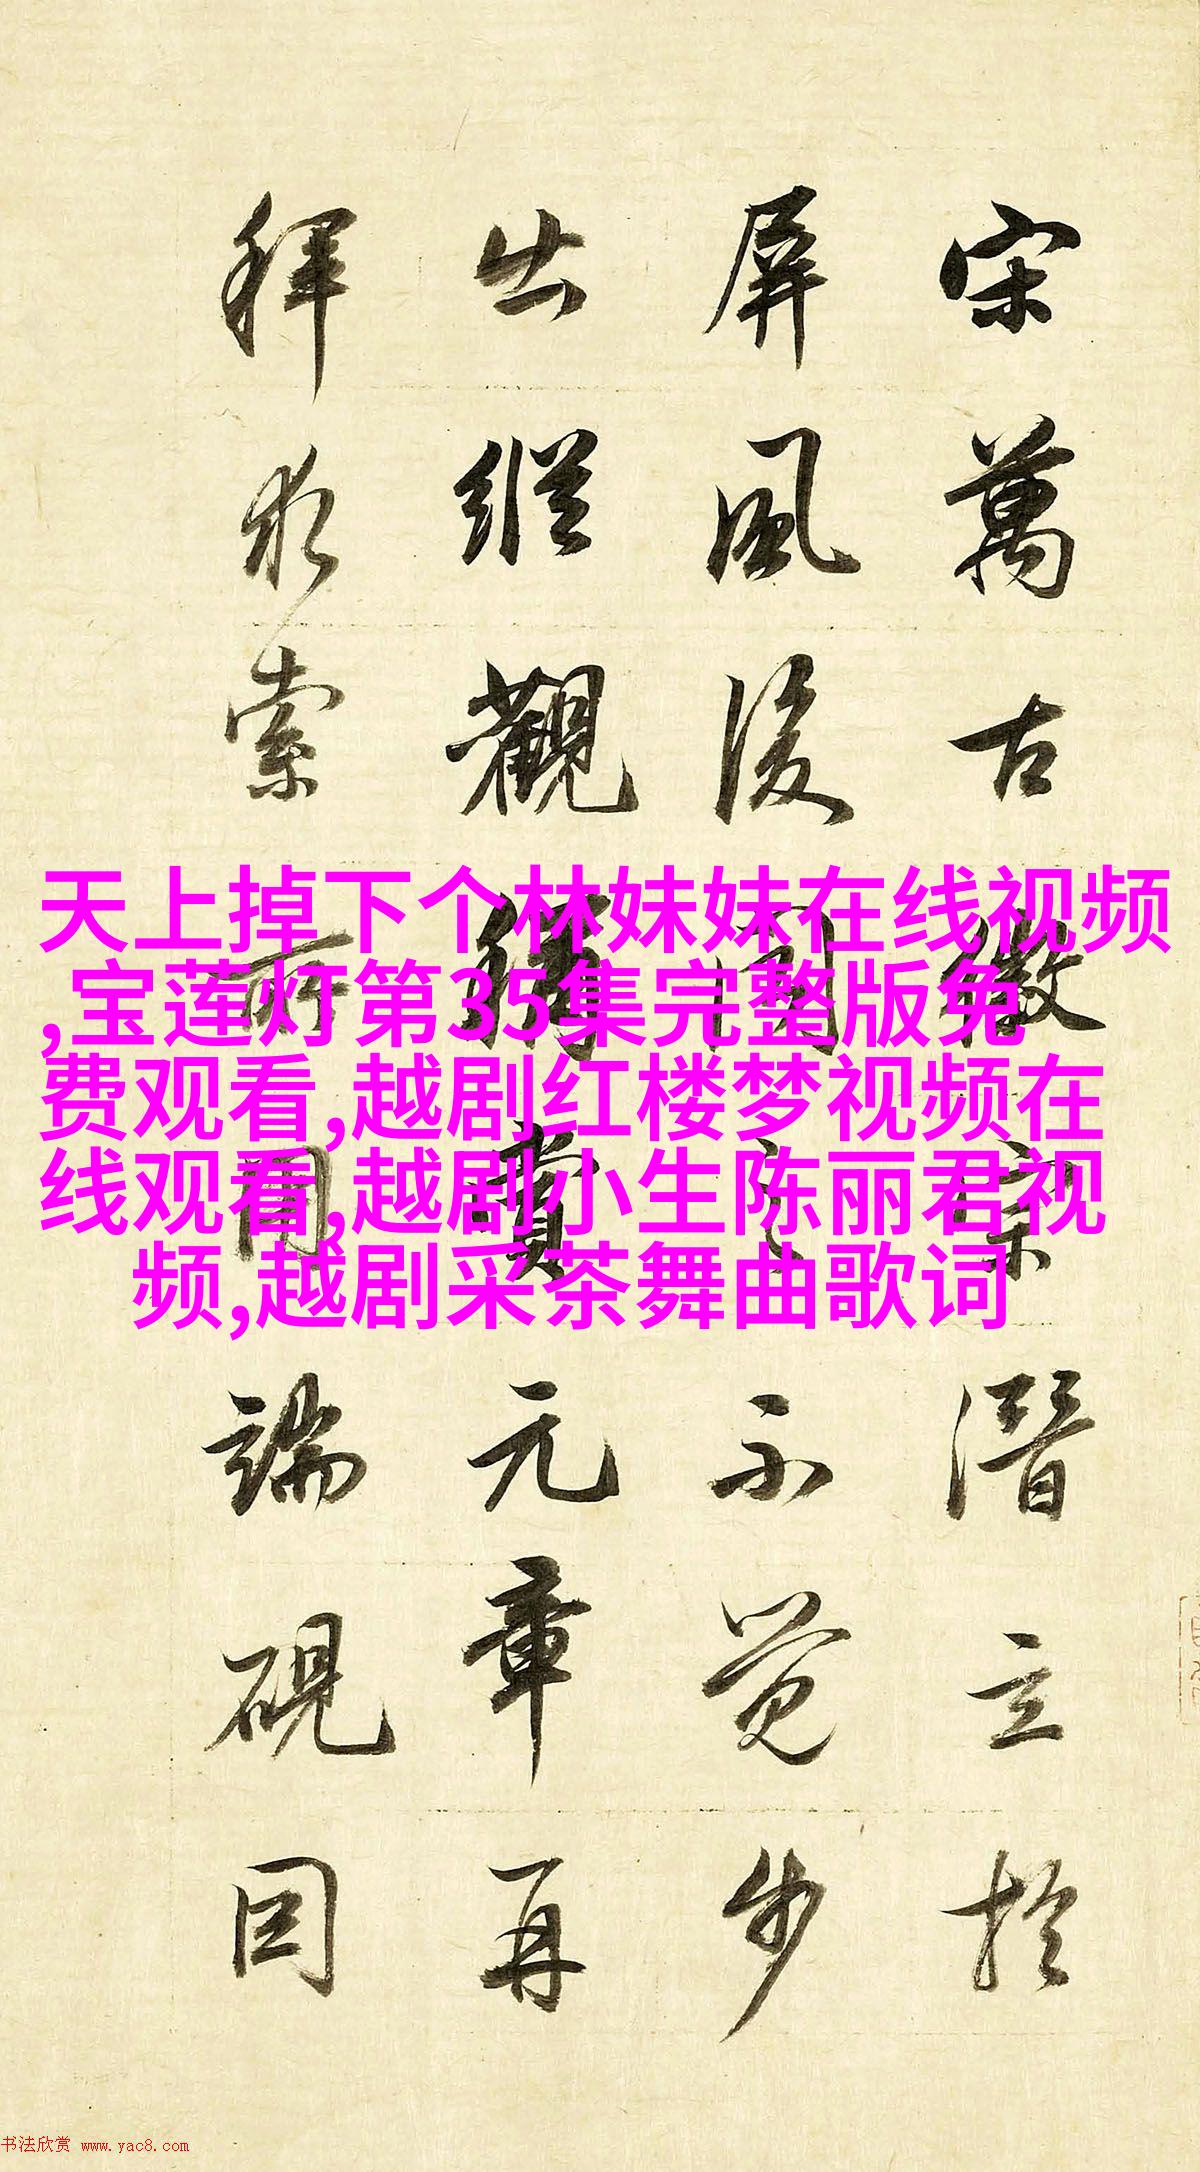 宋萬古徽宗潛立於
屏風後聞之不覺步
出縱觀稱賞元章再
拜求索所用端硯因
天上掉下个林妹妹在线视频
,宝莲灯第35集完整版免
费观看,越剧红楼梦视频在
线观看,越剧小生陈丽君视
频,越剧采茶舞曲歌词
书法欣赏 www.yac8.com